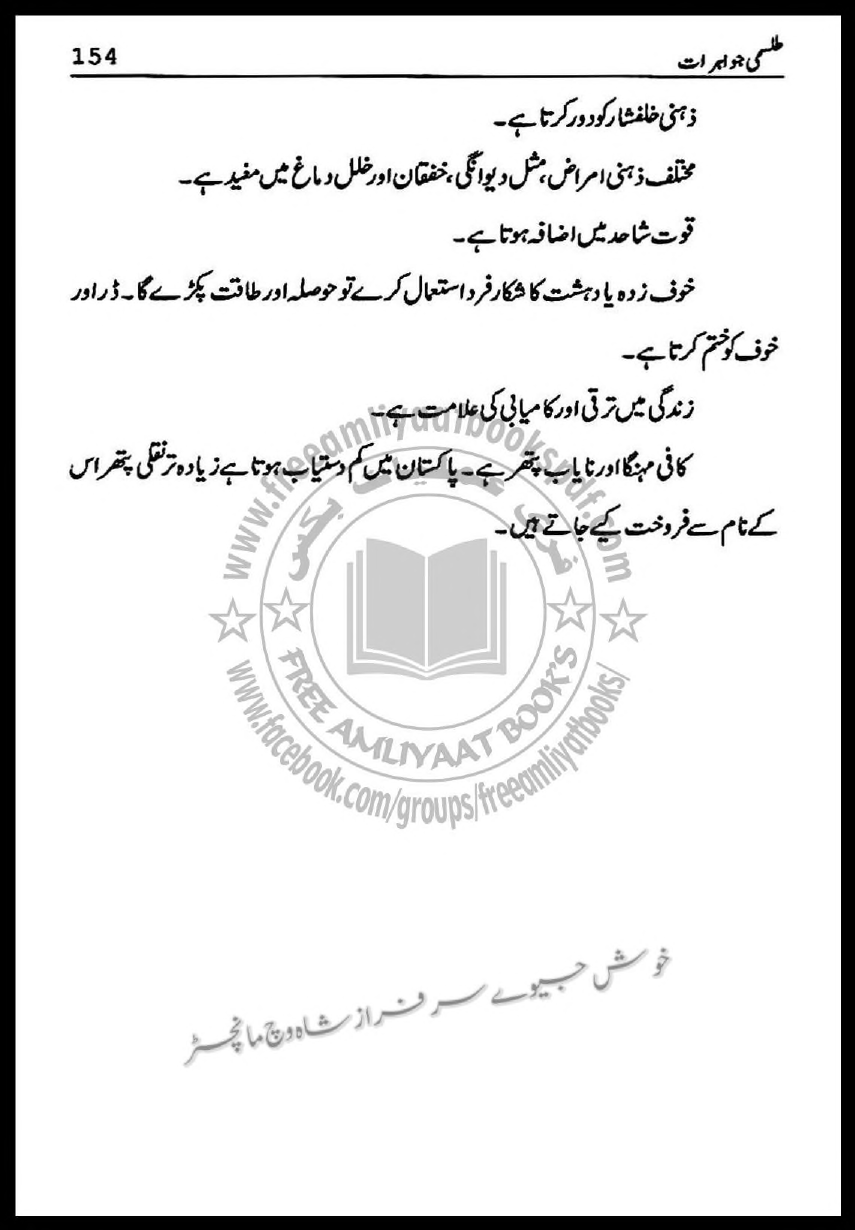 طلسمی جواہرات
154
ذہنی خلفشار کو دور کرتا ہے۔
مختلف ذہنی امراض، مثل دیوانگی، خفقان اور خلل دماغ میں مفید ہے۔
قوت شاحد میں اضافہ ہوتا ہے۔
خوف زدہ یا دہشت کا شکار فرد استعمال کرے تو حوصلہ اور طاقت پکڑے گا۔ ڈر اور
خوف کو ختم کرتا ہے۔
زندگی میں ترقی اور کامیابی کی علامت ہے۔
کافی مہنگا اور نایاب پتھر ہے۔ پاکستان میں کم دستیاب ہوتا ہے زیادہ تر نقلی پتھر اس
کے نام سے فروخت کیے جاتے ہیں۔
www.freeamliyaatbookspdf.com
فری عملیات بکس
FREE AMLIYAAT BOOK'S
www.facebook.com/groups/freeamliyatbooks/
خوش جیوے سرفراز شاہ وچ مانچسٹر